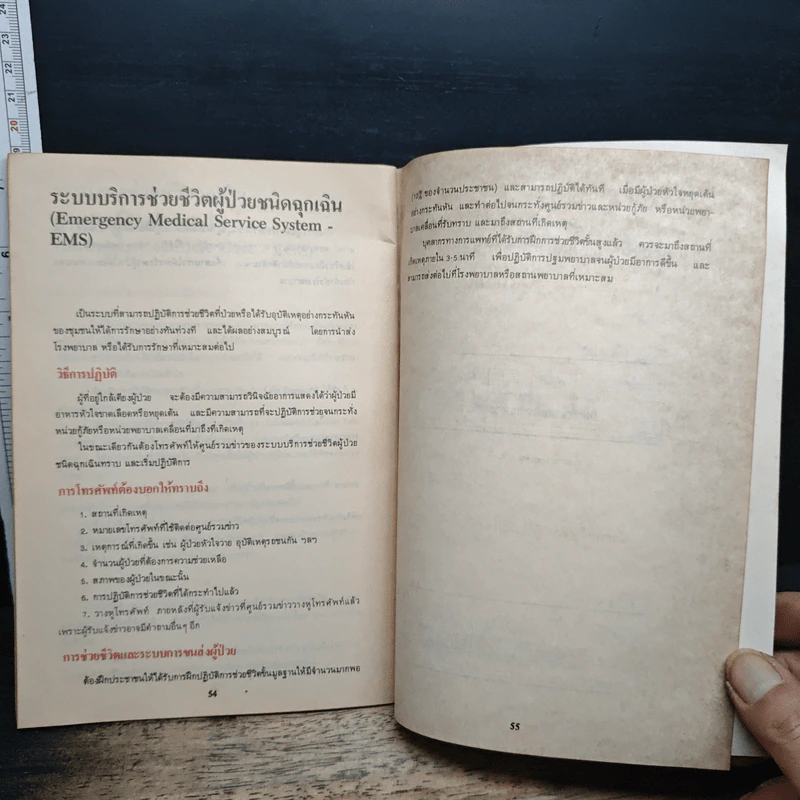 ระบบบริการช่วยชีวิตผู้ป่วยชนิดฉุกเฉิน
(Emergency Medical Service System -
EMS)
เป็นระบบที่สามารถปฏิบัติการช่วยชีวิตที่ป่วยหรือได้รับอุบัติเหตุอย่างกระทันหัน
ของชุมชนให้ได้การรักษาอย่างทันท่วงที และได้ผลอย่างสมบูรณ์ โดยการนำส่ง
โรงพยาบาล หรือได้รับการรักษาที่เหมาะสมต่อไป
วิธีการปฏิบัติ
ผู้ที่อยู่ใกล้เคียงผู้ป่วย จะต้องมีความสามารถวินิจฉัยอาการแสดงได้ว่าผู้ป่วยมี
อาหารหัวใจขาดเลือดหรือหยุดเต้น และมีความสามารถที่จะปฏิบัติการช่วยจนกระทั่ง
หน่วยกู้ภัยหรือหน่วยพยาบาลเคลื่อนที่มาถึงที่เกิดเหตุ
ในขณะเดียวกันต้องโทรศัพท์ให้ศูนย์รวมข่าวของระบบบริการช่วยชีวิตผู้ป่วย
ชนิดฉุกเฉินทราบ และเริ่มปฏิบัติการ
การโทรศัพท์ต้องบอกให้ทราบถึง
1. สถานที่เกิดเหตุ
2. หมายเลขโทรศัพท์ที่ใช้ติดต่อศูนย์รวมข่าว
3. เหตุการณ์ที่เกิดขึ้น เช่น ผู้ป่วยหัวใจวาย อุบัติเหตุรถชนกัน ฯลฯ
4. จำนวนผู้ป่วยที่ต้องการความช่วยเหลือ
5. สภาพของผู้ป่วยในขณะนั้น
6. การปฏิบัติการช่วยชีวิตที่ได้กระทำไปแล้ว
7. วางหูโทรศัพท์ ภายหลังที่ผู้รับแจ้งข่าวที่ศูนย์รวมข่าววางหูโทรศัพท์แล้ว
เพราะผู้รับแจ้งข่าวอาจมีคำถามอื่นๆ อีก
การช่วยชีวิตและระบบการขนส่งผู้ป่วย
ต้องฝึกประชาชนให้ได้รับการฝึกปฏิบัติการช่วยชีวิตขั้นมูลฐานให้มีจำนวนมากพอ
54
ของจำนวนประชาชน) และสามารถปฏิบัติได้ทันที เมื่อมีผู้ป่วยหัวใจหยุดเต้น
อย่างกระทันหัน และทำต่อไปจนกระทั่งศูนย์รวมข่าวและหน่วยกู้ภัย หรือหน่วยพยา-
บาลเคลื่อนที่รับทราบ และมาถึงสถานที่เกิดเหตุ
บุคลากรทางการแพทย์ที่ได้รับการฝึกการช่วยชีวิตขั้นสูงแล้ว ควรจะมาถึงสถานที่
เกิดเหตุภายใน 3-5 นาที เพื่อปฏิบัติการปฐมพยาบาลจนผู้ป่วยมีอาการดีขึ้น และ
สามารถส่งต่อไปที่โรงพยาบาลหรือสถานพยาบาลที่เหมาะสม
55
24
23
22
21
20
19